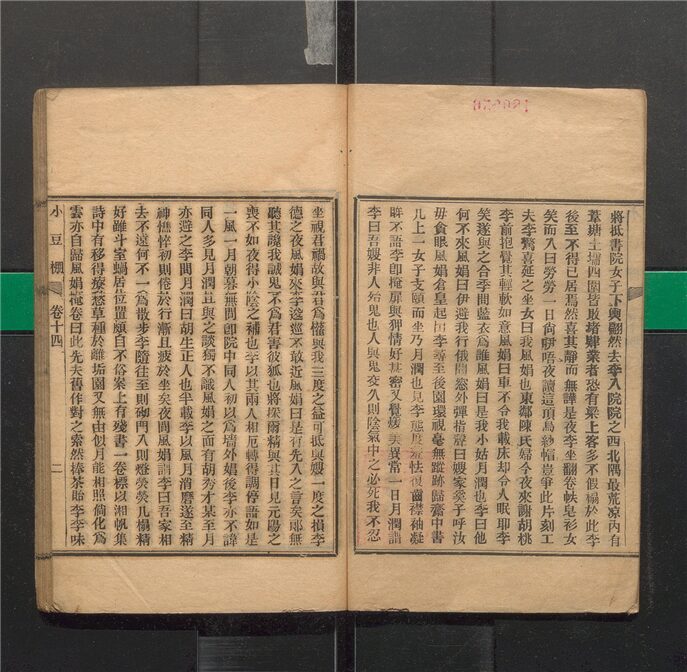 032021
將抵書院女子下輿翩然去李入院院之西北隅最荒凉内有
葦塘土壩四圍皆敗堵肄業者恐有梁上客多不假榻於此李
後至不得已居焉然喜其靜而無譁是夜李坐翻卷帙皂衫女
笑而入曰勞勞一日尚伊唔夜讀這頂烏紗帽豈爭此片刻工
夫李驚喜延之坐女曰我風娟也東鄰陳氏婦今夜來謝胡桃
李前抱覺其輕軟如意風娟曰車不令我載床却令人眠耶李
笑遂與之合李問藍衣為誰風娟曰是我小姑月潤也李曰他
何不來風娟曰伊避我行俄聞窓外彈指聲曰嫂家羹子呼汝
毋貪眠風娟倉皇起出李尋至後園環視毫無蹤跡歸齋中書
几上一女子支頤而坐乃月潤也見李態度羞怯復齒襟袖凝
眸不語李即掩扉與狎情好甚密又覺煖美異常一日月潤謂
李曰吾嫂非人始鬼也人與鬼交久則陰氣中之必死我不忍
坐視君禍故與君為懽與我三度之益可抵與嫂一度之損李
德之夜風娟來李逡巡不敢近風娟曰是有先入之言矣耶無
聽其譏我誠鬼不為君害彼狐也將採爾精與其日見元陽之
喪不如夜得小陰之補也李以其兩人相厄轉得調停語如是
一風一月朝暮無間即院中同人初以為墻外娼後李亦不諱
同人多見月潤且與之談獨不識風娟之面有胡秀才某至月
亦避之李問月潤曰胡生正人也半載李以風月消磨遂至精
神憔悴初則倦於行漸且疲於坐矣夜間風娟謂李曰吾家相
去不遠何不一為散步李隨往至則砌門入則燈熒熒几榻精
好雖斗室蝸居位置頗自不俗案上有殘書一卷標以湘帆集
詩中有移得療愁草種於離垢園又無由似月能相照倘化為
雲亦自歸風娟掩卷曰此先夫舊作對之索然捧茶貽李李味
小豆棚 卷十四 二